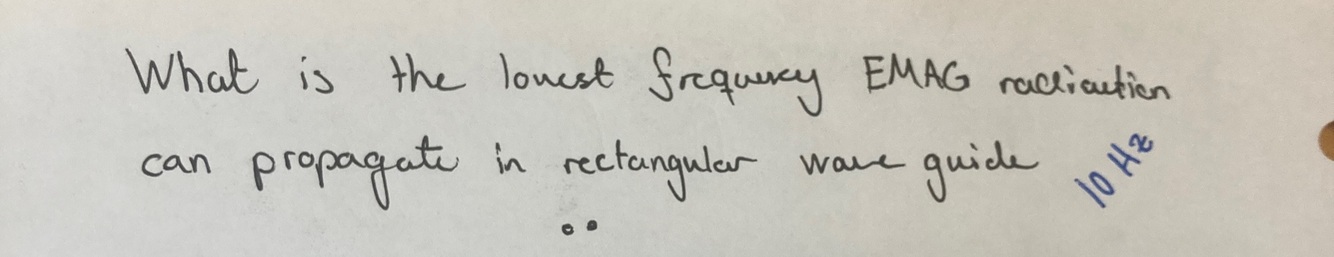 What is the lowest frequency EMAG radiation
can propagate in rectangular wave guide 10 Hz